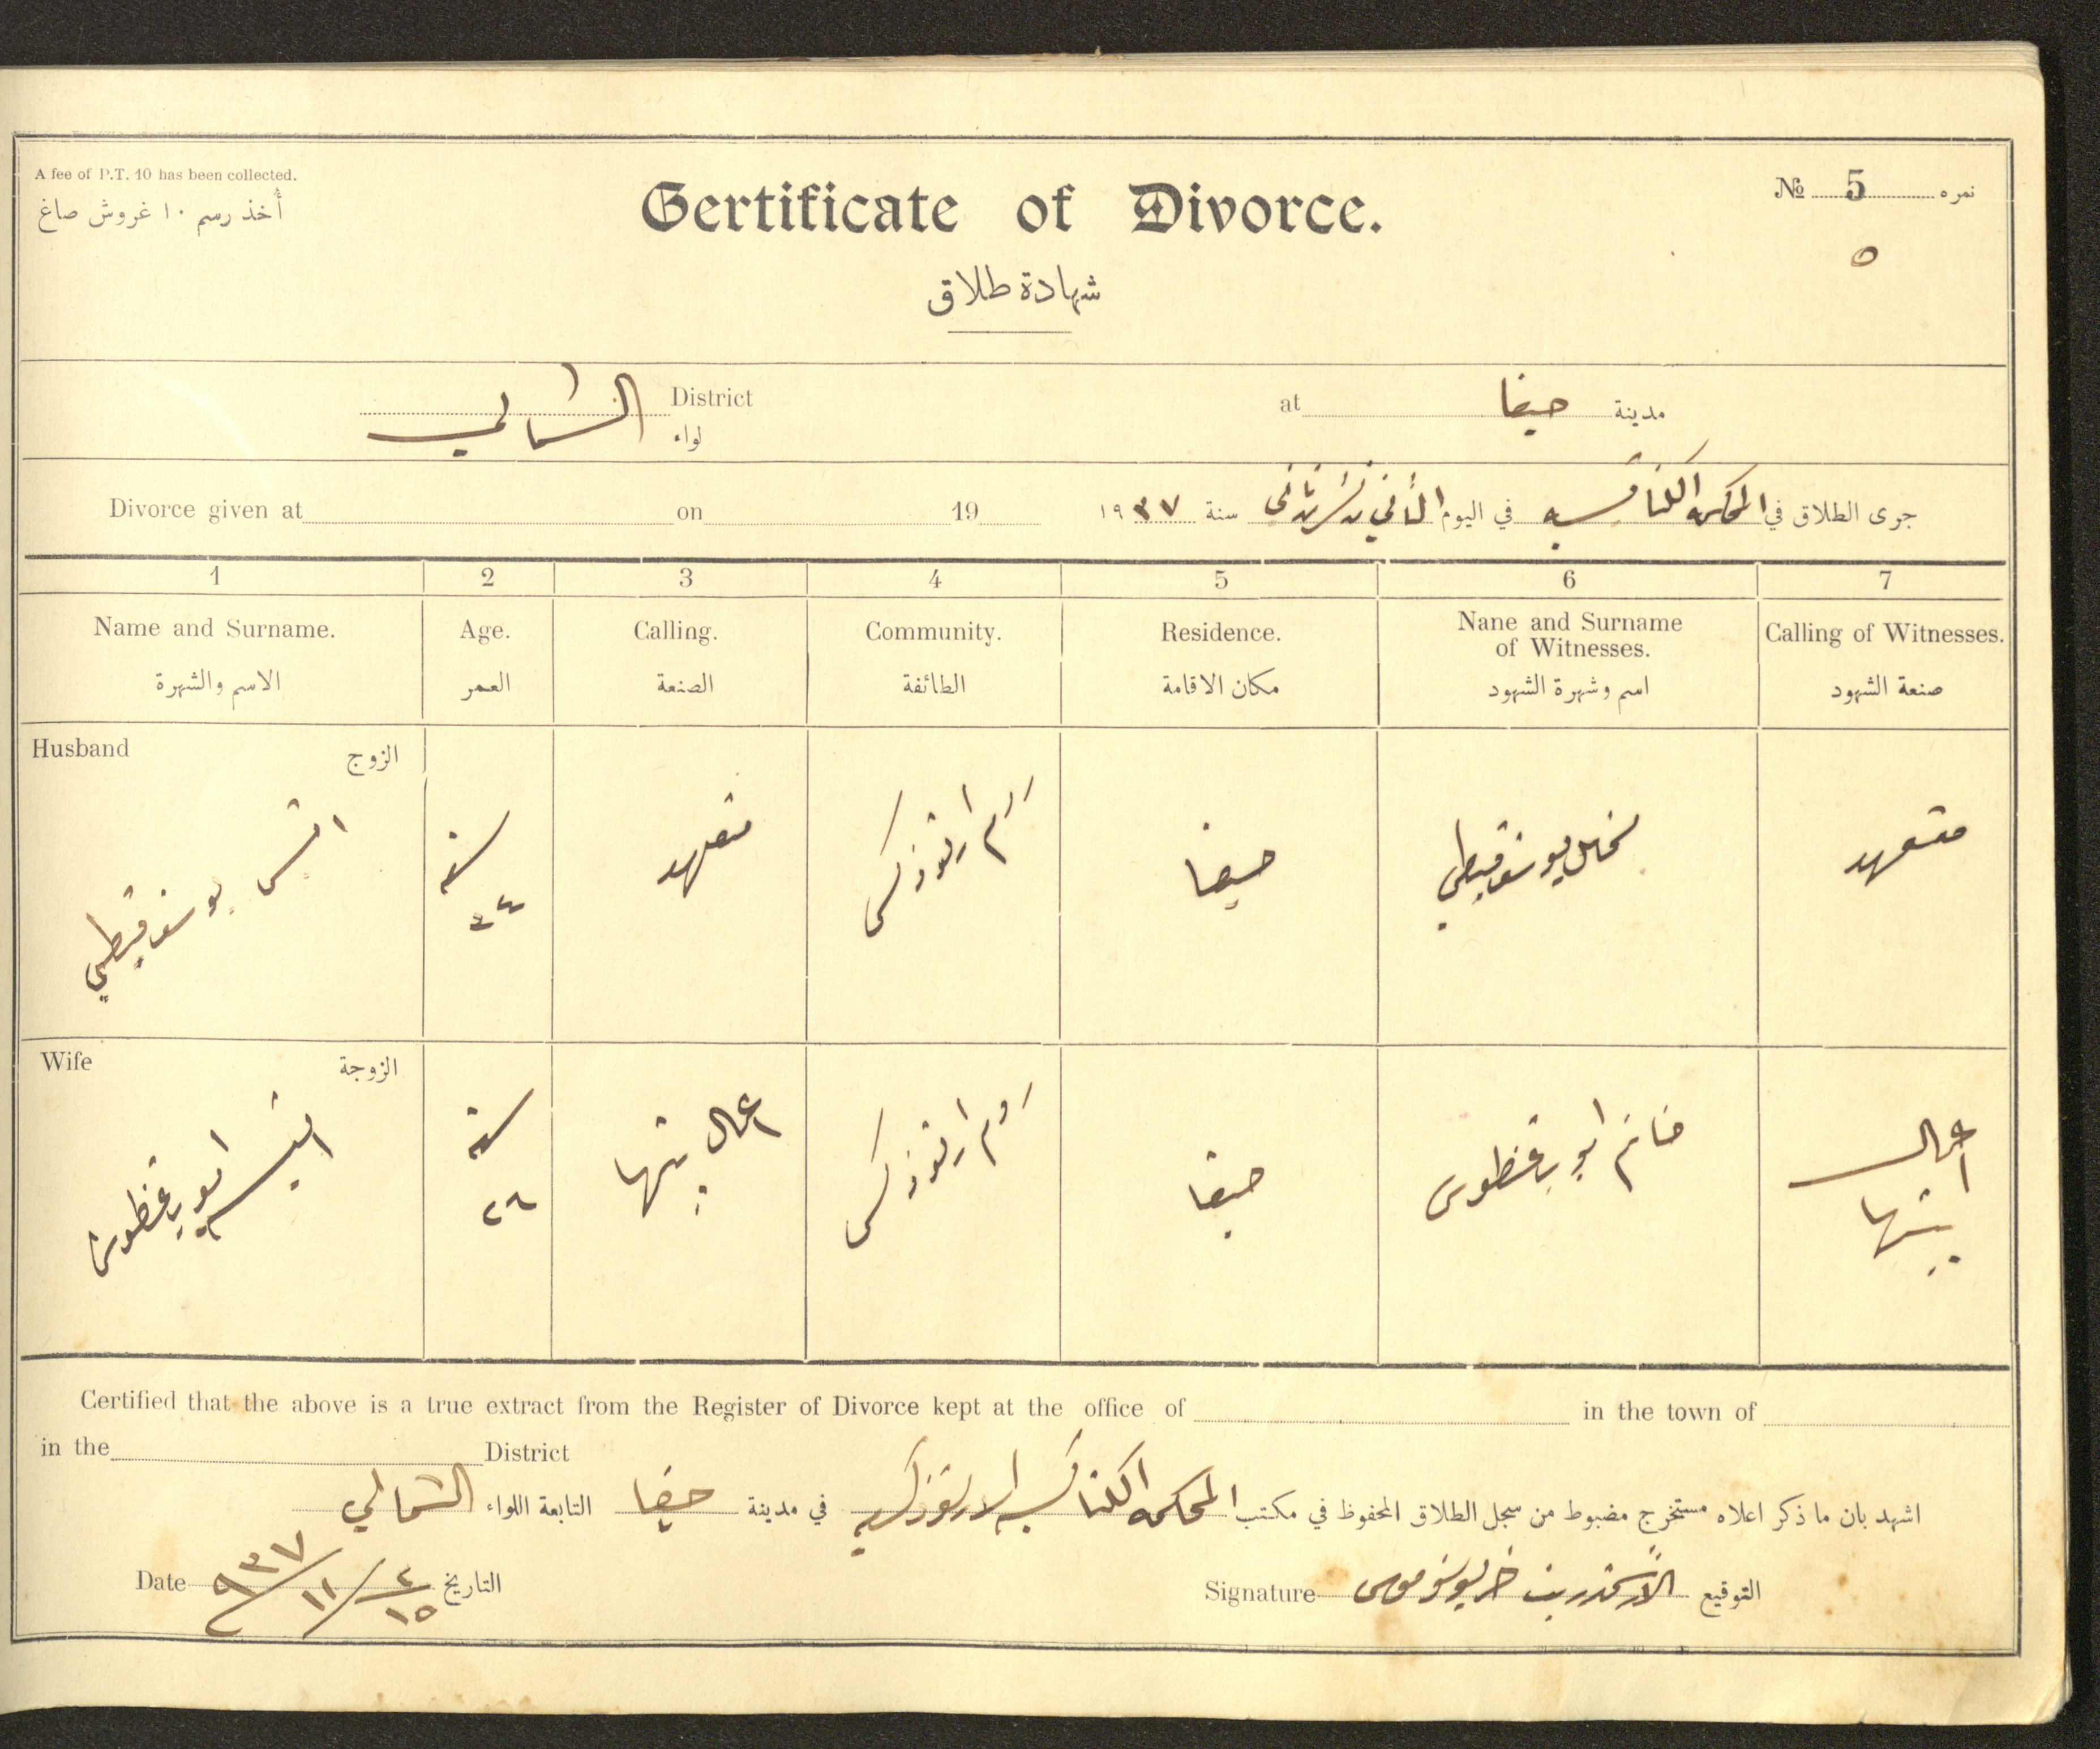 A fee of P.T. 10 has been collected.
أُخذ رسم ١٠ غروش صاغ
Certificate of Divorce.
شهادة طلاق
№ 5 نمره
٥
District الشمالي لواء
at حيفا مدينة
Divorce given at on 19
جرى الطلاق في المحكمة الكنائسية في اليوم الثاني تشرين ثاني سنة ١٩٣٧
1 2 3 4 5 6 7
Name and Surname. Age. Calling. Community. Residence. Nane and Surname of Witnesses. Calling of Witnesses.
الاسم والشهرة العمر الصنعة الطائفة مكان الاقامة اسم وشهرة الشهود صنعة الشهود
Husband الزوج
يوسف قبطي
سنة ٣٤
متعهد
روم ارثوذكس
حيفا
يوسف قبطي
متعهد
Wife الزوجة
ابو
سنة ٢٩
اعمال بيتها
روم ارثوذكس
حيفا
ابو
اعمال بيتها
Certified that the above is a true extract from the Register of Divorce kept at the office of in the town of
in the District
اشهد بان ما ذكر اعلاه مستخرج مضبوط من سجل الطلاق المحفوظ في مكتب المحكمة الكنائسية الارثوذكسية في مدينة حيفا التابعة اللواء الشمالي
Date التاريخ
Signature التوقيع